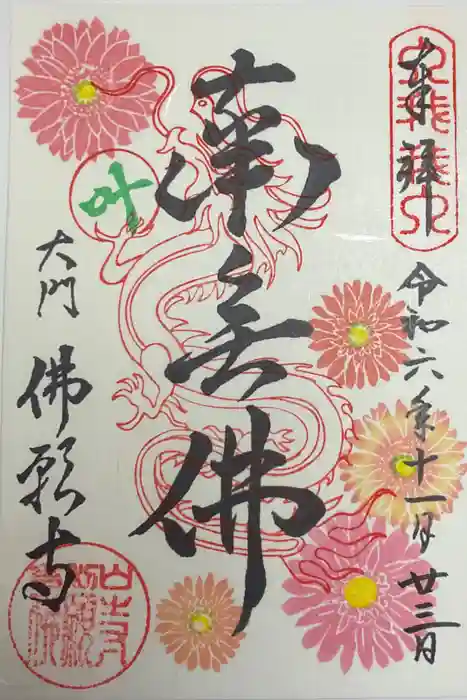 奉拝
令和六年十一月廿三日
南无佛
叶
大門
佛願寺